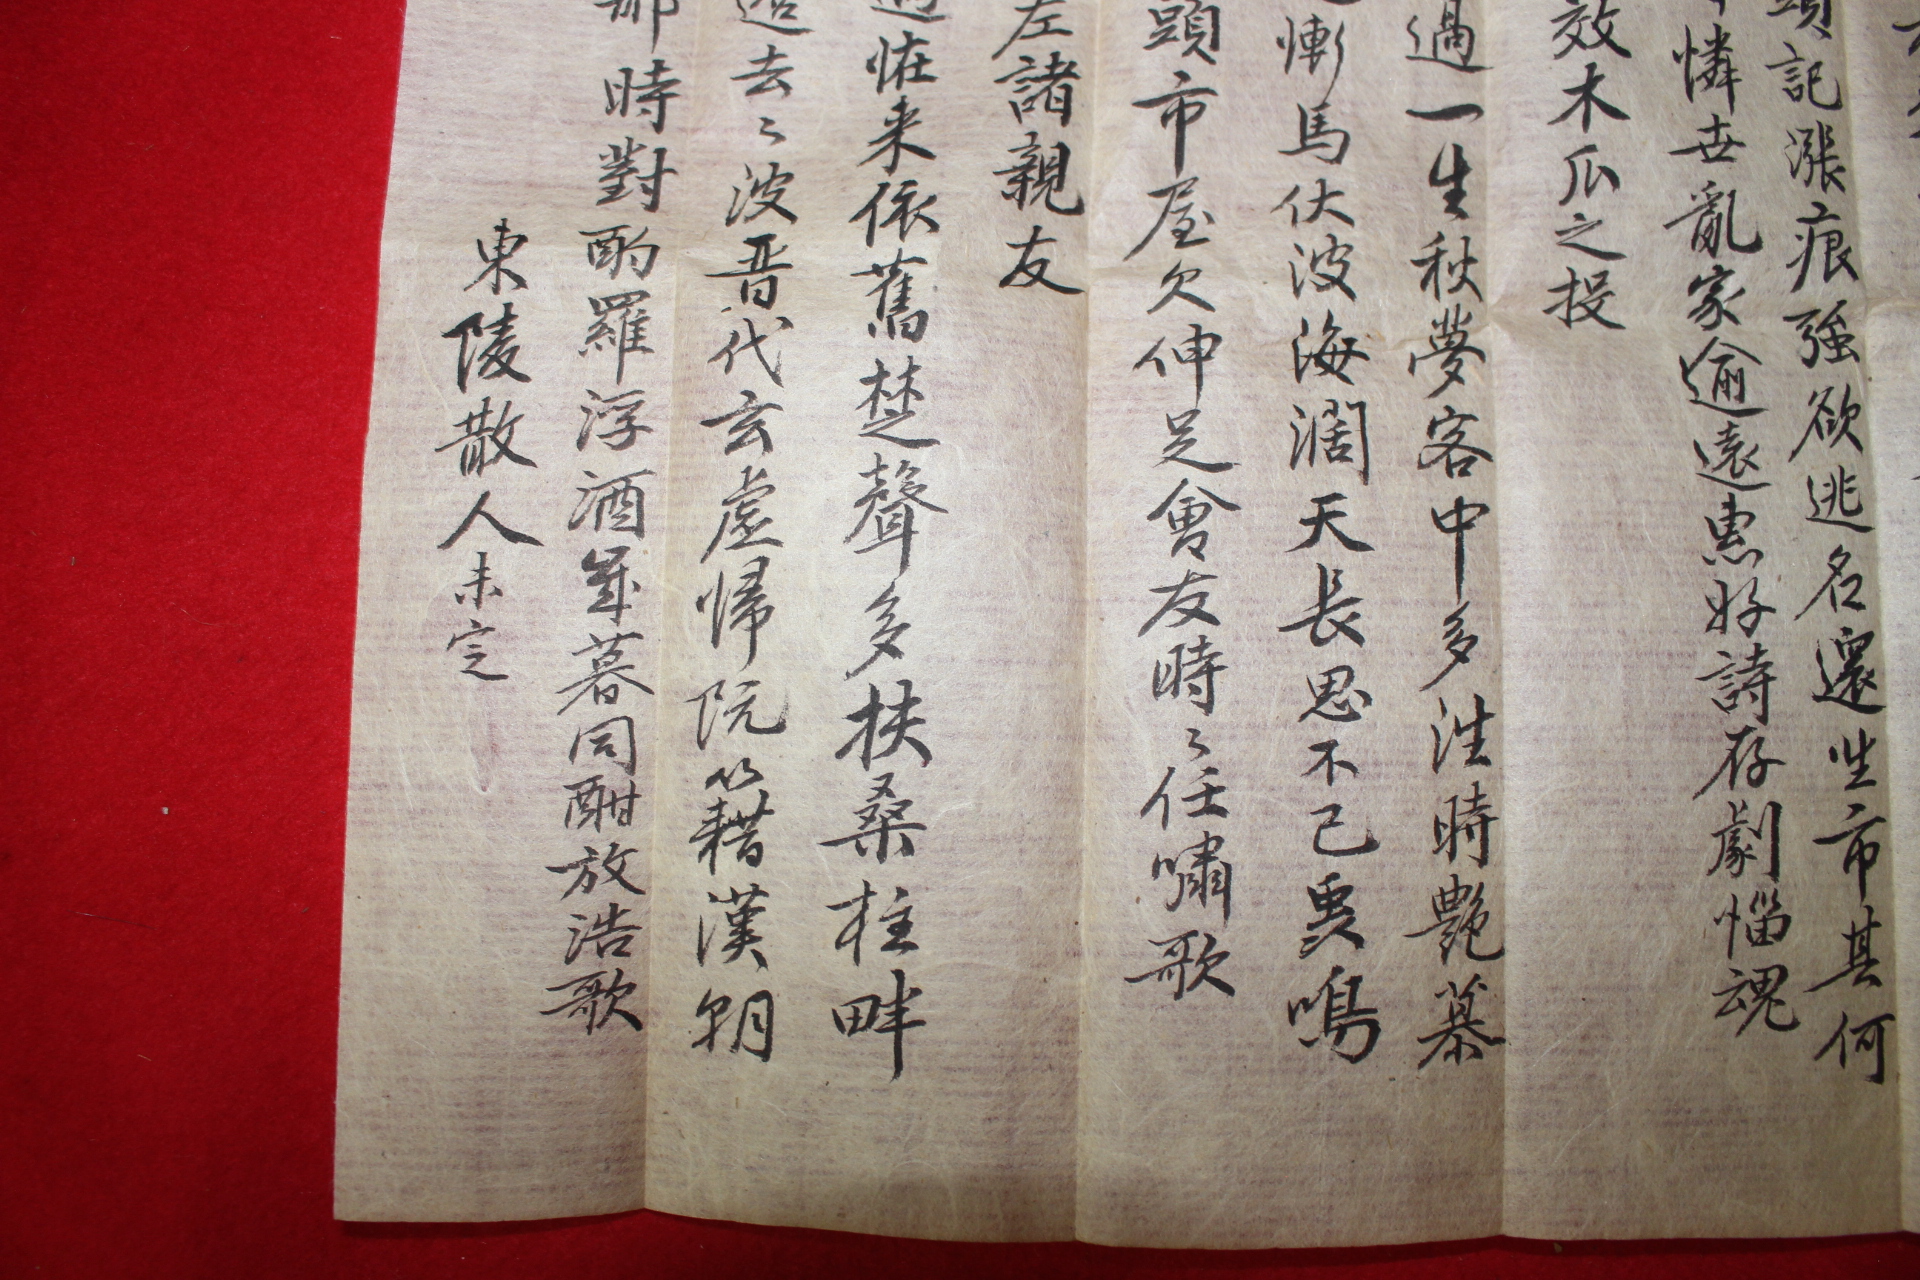 頭記漲痕強欲逃名還坐市其何
憐世亂家逾遠惠好詩存劇惱魂
效木瓜之投
過一生秋夢客中多往時艶慕
慚馬伏波海濶天長思不已鳴
頭市屋欠伸足會友時々任嘯歌
左諸親友
過恠来依舊楚聲多扶桑柱畔
去々波晋代玄虛帰阮籍漢朝
那時對酌羅浮酒歲暮同酣放浩歌
東陵散人未定